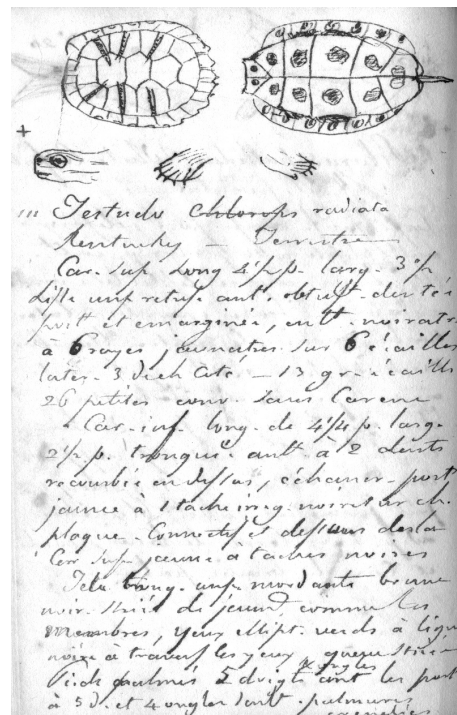 111 Testudo chlorops radiata
Kentucky — Terrestre
Car. sup. long 4½ p. larg. 3
post. et emarginée, noiratre
à 6 rayes jaunatres sur 6 écailles
later. 3 de ch. coté — 13 gr. écailles
26 petites conv. sans Carene
Car. inf. long. de 4¼ p. larg.
2½ p. tronquée ant. à 2 dents
recourbée en dessus, échancr. post
jaune à 1 tache irreg. noire sur ch.
plaque. Connectifs et dessous de la
Car. sup. jaune à taches noires
Tete brune
noir. strié de jaune comme les
membres, yeux ellipt. verds à ligne
noire à travers les yeux queue striée
Pieds palmés 5 doigts ongles ant. les post
à 5 d. et 4 ongles palmures